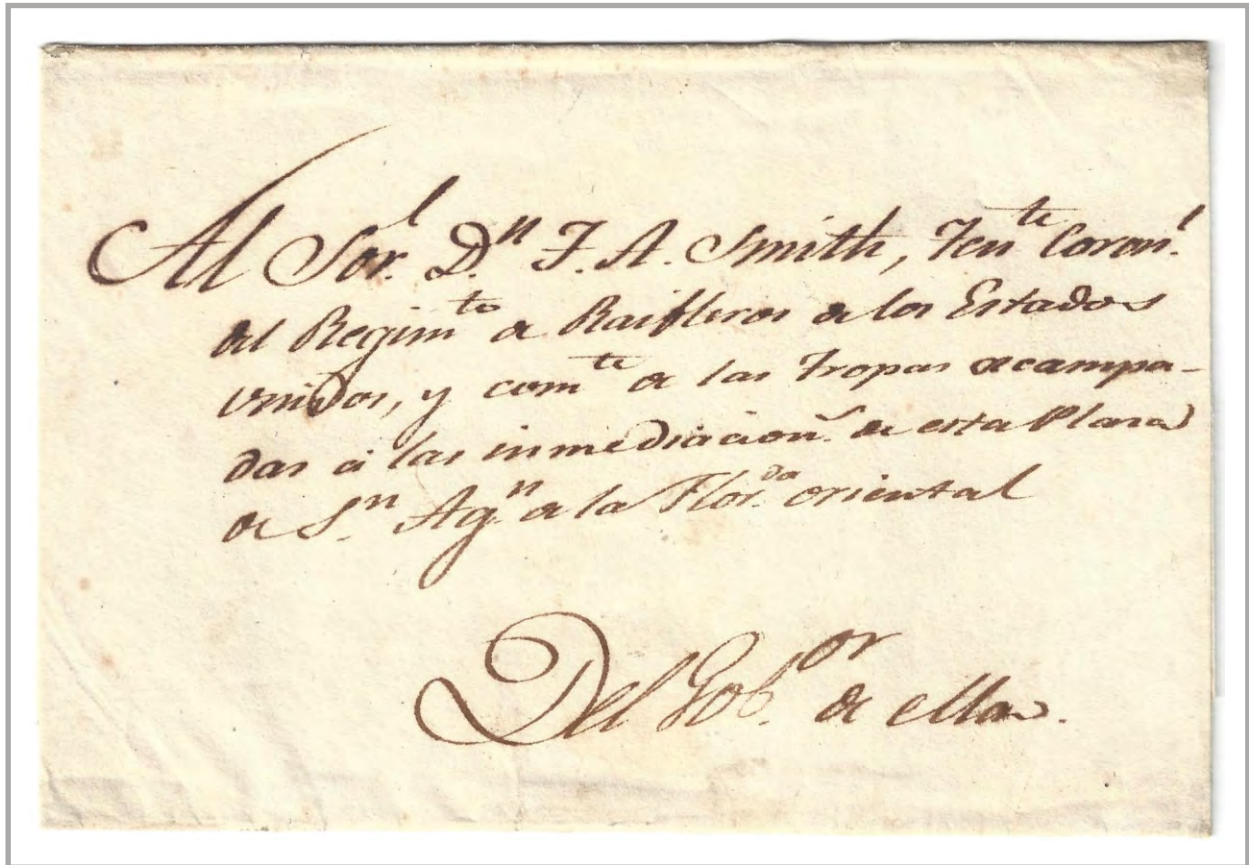 Al Sor. Dn F. A. Smith, Tente Coronl.
del Regimto de Raifleros de los Estados
unidos, y comte de las tropas acampa-
das á las inmediacion. de esta Plaza
de Sn. Agn. de la Flor.da oriental
Del Gob.or de ella.